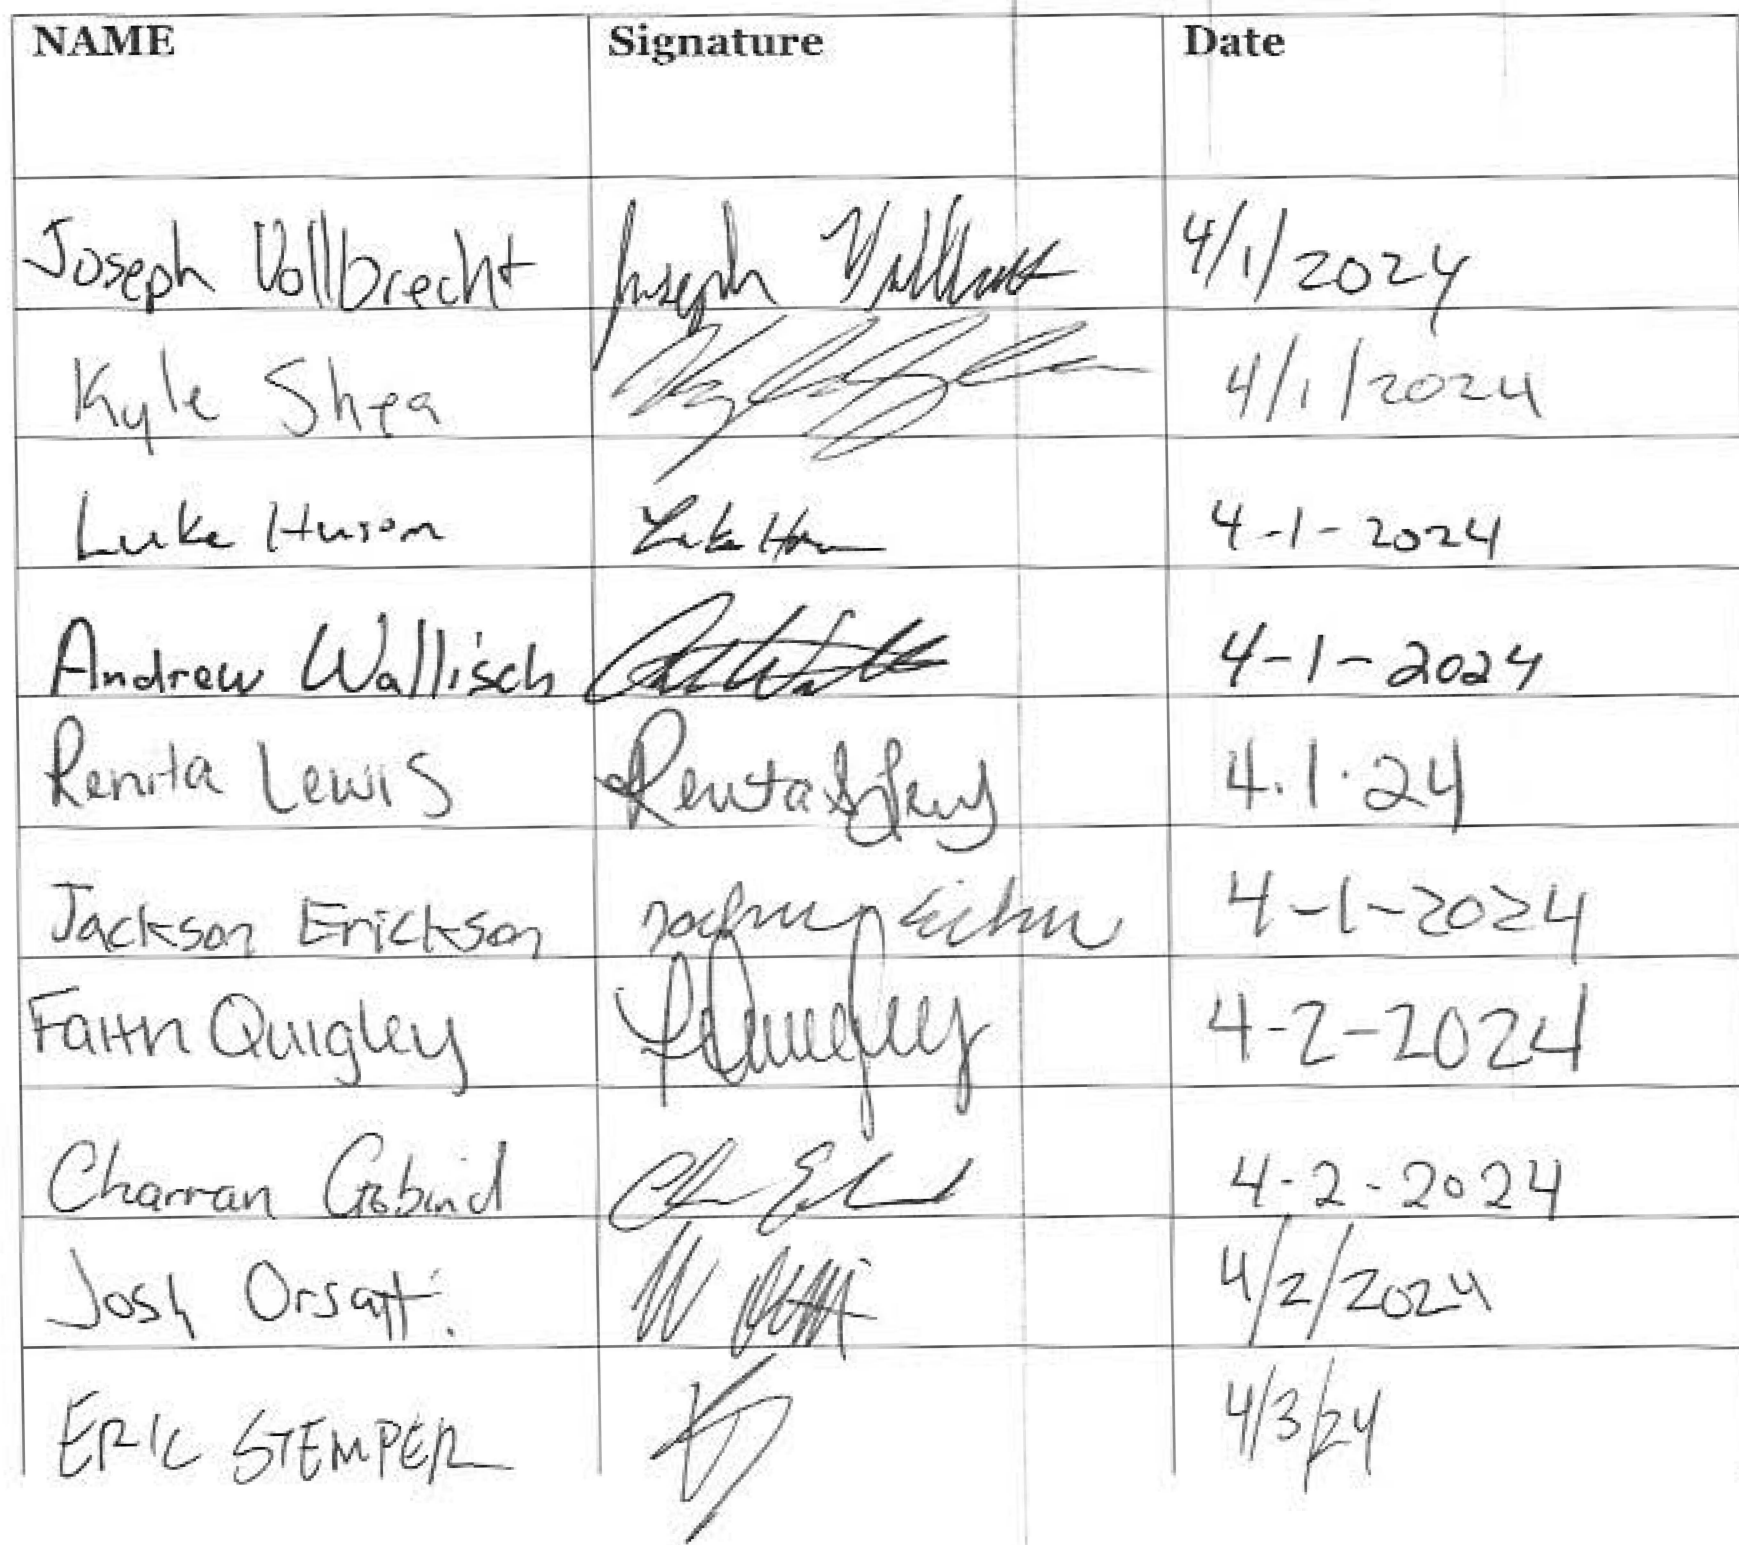 NAME Signature Date
Joseph Vollbrecht Joseph Vollbrecht 4/1/2024
Kyle Shea 4/1/2024
Luke Huson Luke H 4-1-2024
Andrew Wallisch 4-1-2024
Renita Lewis Renita Lewis 4.1.24
Jackson Erickson 4-1-2024
Faith Quigley F Quigley 4-2-2024
Charran Gobind 4-2-2024
Josh Orsatti 4/2/2024
ERIC STEMPER 4/3/24